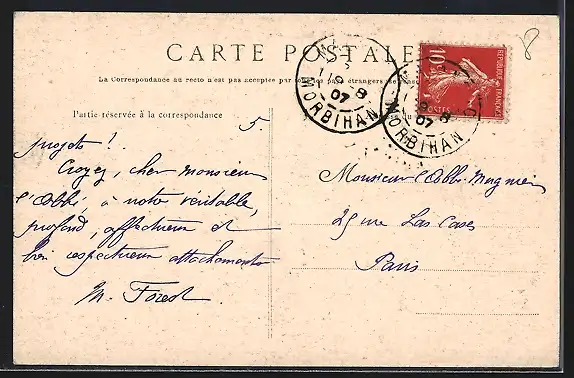 8
CARTE POSTALE
La Correspondance au recto n'est pas acceptée par étrangers
Partie réservée à la correspondance
5.
projets !..
Croyez, cher monsieur
l'abbé à notre véritable,
profond, affectueux et
bien respectueux attachement
M. Forest
MORBIHAN
8
07
MORBIHAN
8
07
REPUBLIQUE FRANÇAISE
10
POSTES
Monsieur l'Abbé Magnien
25 rue Las Cases
Paris